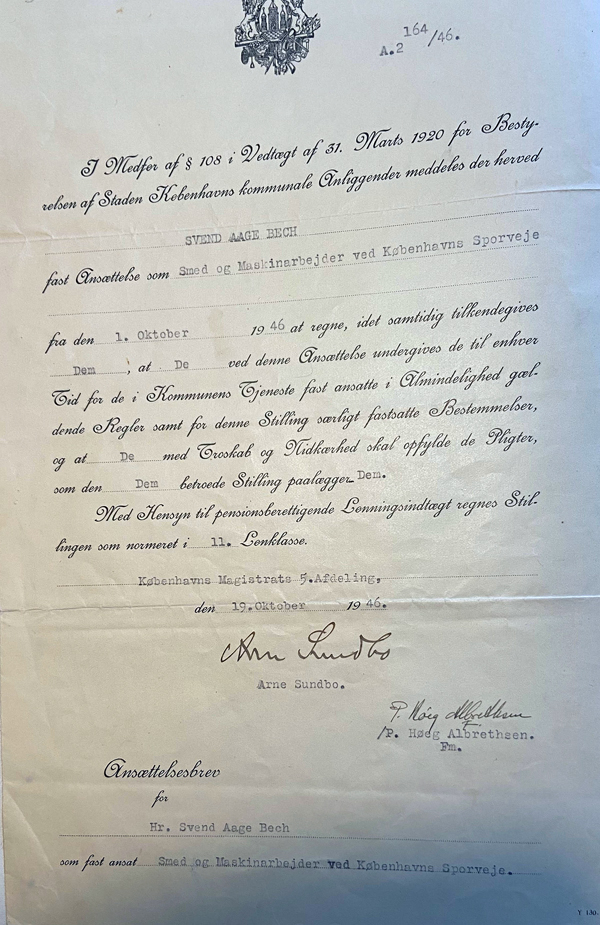 A.2 164/46.
I Medfør af § 108 i Vedtægt af 31. Marts 1920 for Besty-
relsen af Staden Københavns kommunale Anliggender meddeles der herved
SVEND AAGE BECH
fast Ansættelse som Smed og Maskinarbejder ved Københavns Sporveje
fra den 1. Oktober 1946 at regne, idet samtidig tilkendegives
Dem, at De ved denne Ansættelse undergives de til enhver
Tid for de i Kommunens Tjeneste fast ansatte i Almindelighed gæl-
dende Regler samt for denne Stilling særligt fastsatte Bestemmelser,
og at De med Troskab og Nidkærhed skal opfylde de Pligter,
som den Dem betroede Stilling paalægger Dem.
Med Hensyn til pensionsberettigende Lønningsindtægt regnes Stil-
lingen som normeret i 11. Lønklasse.
Københavns Magistrats 5.Afdeling,
den 19.Oktober 1946.
Arne Sundbo
Arne Sundbo.
P. Høeg Albrethsen
/P. Høeg Albrethsen.
Fm.
Ansættelsesbrev
for
Hr. Svend Aage Bech
som fast ansat Smed og Maskinarbejder ved Københavns Sporveje.
T 130.